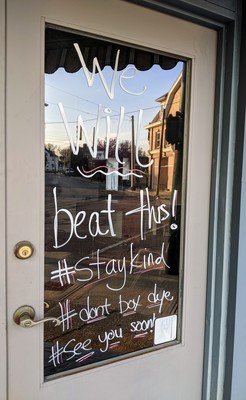 We
Will
beat this!
#staykind
#dont box dye
#see you soon!